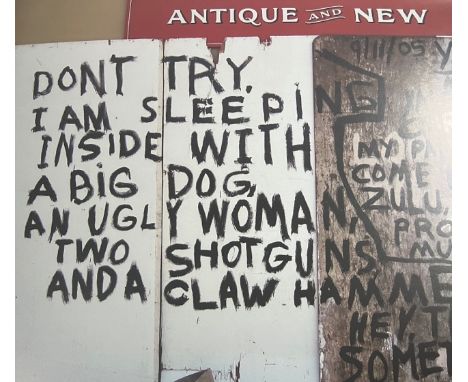 ANTIQUE AND NEW
DONT TRY.
I AM SLEEPING
INSIDE WITH
A BIG DOG,
AN UGLY WOMAN,
TWO SHOTGUNS
AND A CLAW HAMME
9/11/05
MY
COME
ZULU,
PRO
MU
HEY T
SOMET